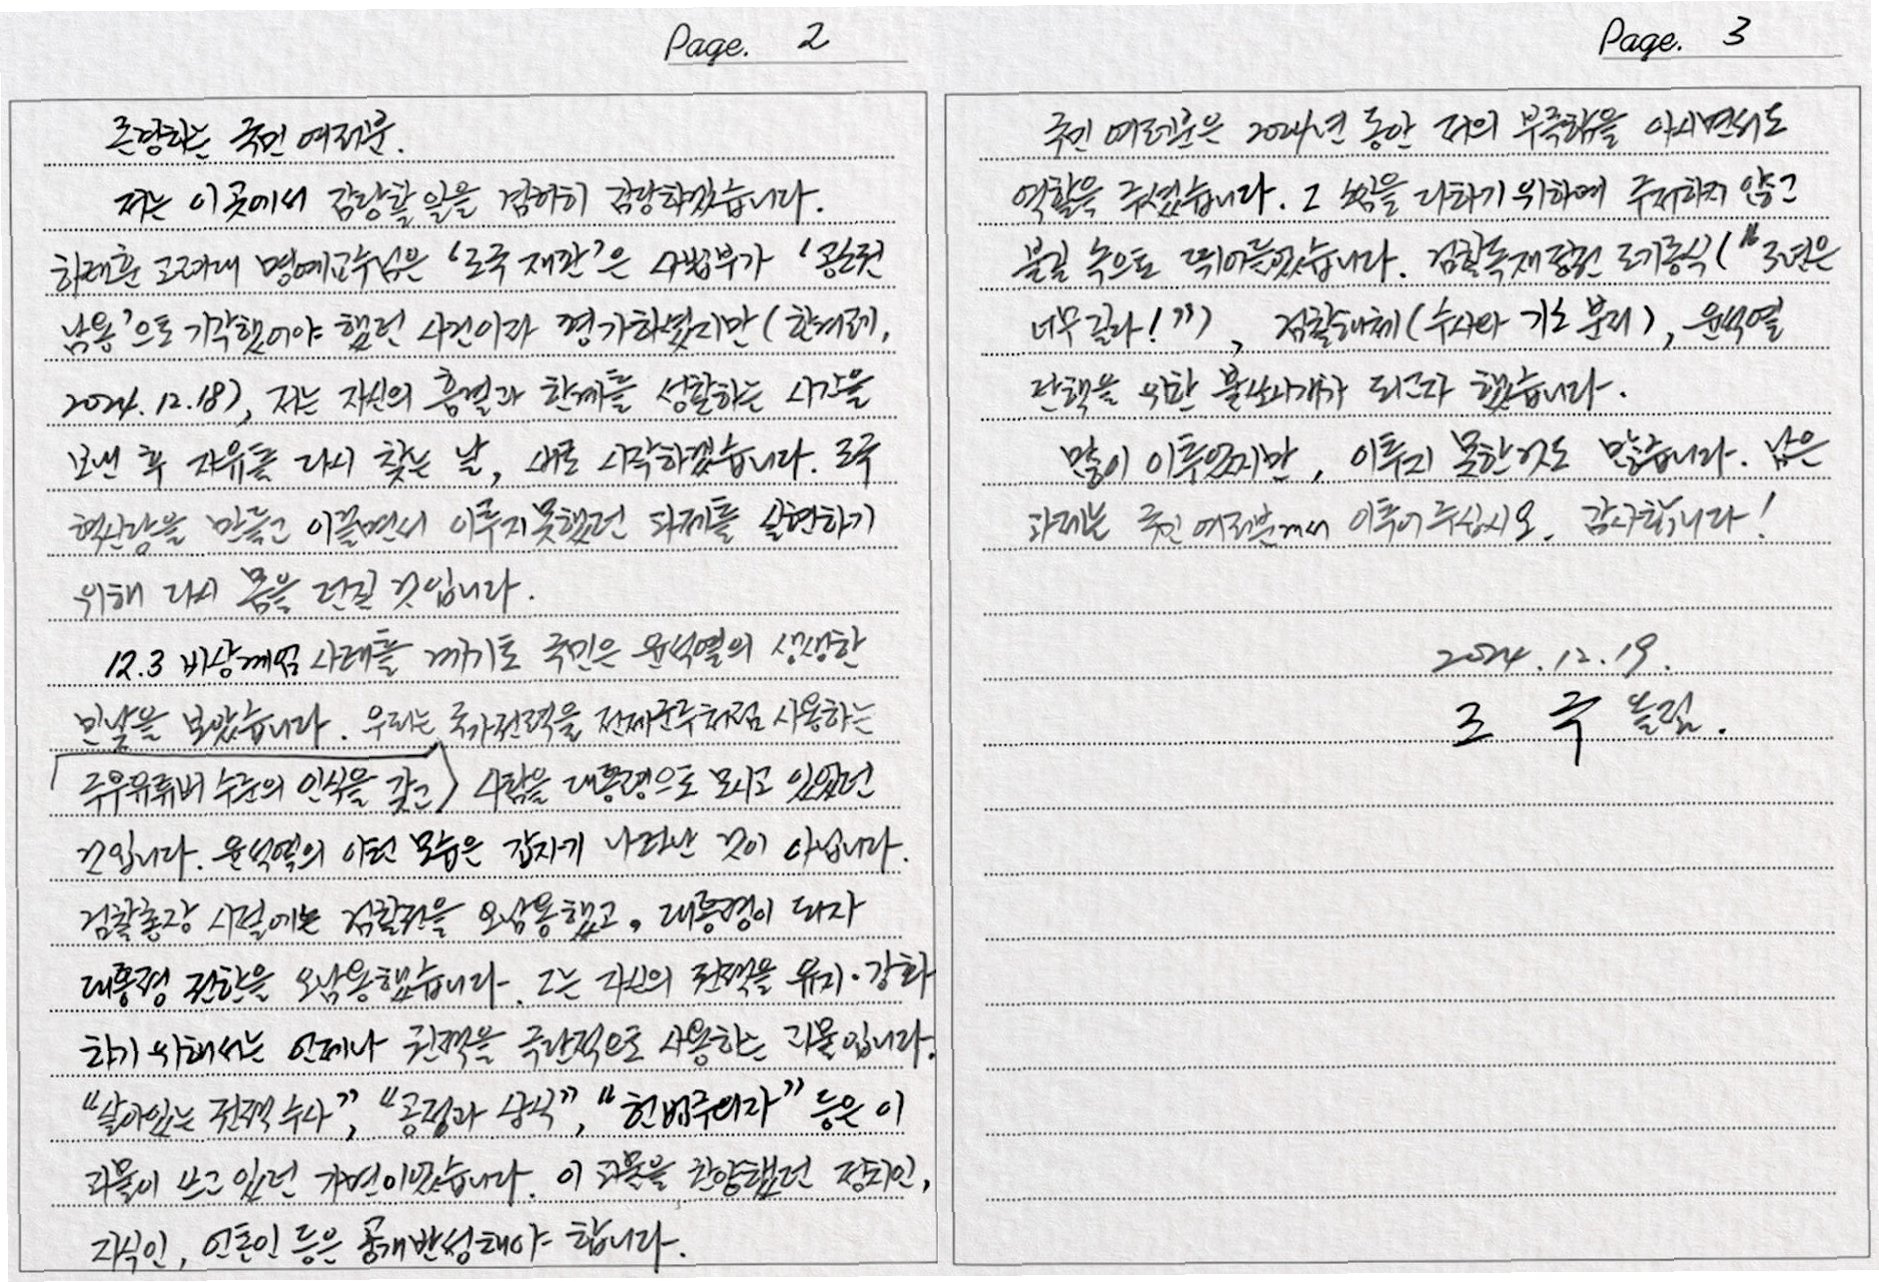 Page. 2
존경하는 국민 여러분.
저는 이곳에서 감당할 일을 겸허히 감당하겠습니다.
하태훈 고려대 명예교수님은 '조국 재판'은 사법부가 '공소권
남용'으로 기각했어야 했던 사건이라 평가하셨지만(한겨레,
2024.12.18), 저는 자신의 흠결과 한계를 성찰하는 시간을
보낸 후 자유를 다시 찾는 날, 새로 시작하겠습니다. 조국
혁신당을 만들고 이끌면서 이루지 못했던 과제를 실현하기
위해 다시 몸을 던질 것입니다.
12.3 비상계엄 사태를 계기로 국민은 윤석열의 생생한
민낯을 보았습니다. 우리는 국가권력을 전제군주처럼 사용하는
극우유튜버 수준의 인식을 갖고 사람을 대통령으로 모시고 있었던
것입니다. 윤석열의 이런 모습은 갑자기 나타난 것이 아닙니다.
검찰총장 시절에는 검찰권을 오남용했고, 대통령이 되자
대통령 권한을 오남용했습니다. 그는 자신의 권력을 유지·강화
하기 위해서는 언제나 권력을 극단적으로 사용하는 괴물입니다.
"살아있는 권력 수사", "공정과 상식", "헌법주의자" 등은 이
괴물이 쓰고 있던 가면이었습니다. 이 괴물을 찬양했던 정치인,
지식인, 언론인 등은 공개반성해야 합니다.
Page. 3
국민 여러분은 2024년 동안 저의 부족함을 아시면서도
역할을 주셨습니다. 그 쓰임을 다하기 위하여 주저하지 않고
불길 속으로 뛰어들었습니다. 검찰독재정권 조기종식("3년은
너무 길다!"), 검찰해체(수사와 기소 분리), 윤석열
탄핵을 위한 불쏘시개가 되고자 했습니다.
많이 이루었지만, 이루지 못한 것도 많습니다. 남은
과제는 국민 여러분께서 이루어 주십시오. 감사합니다!
2024.12.19.
조 국 올림.